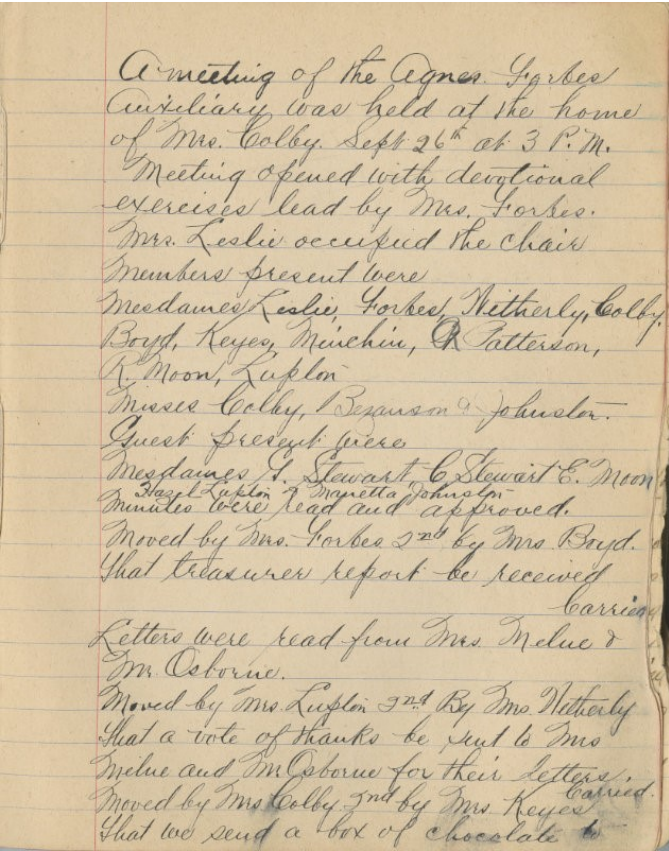 A meeting of the Agnes Forbes
Auxiliary was held at the home
of Mrs. Colby. Sept 26th at 3 P.M.
Meeting opened with devotional
exercises lead by Mrs. Forbes.
Mrs. Leslie occupied the chair
Members present were
Mesdames Leslie, Forbes, Witherly, Colby,
Boyd, Keyes, Minchin, R Patterson,
R. Moon, Lupton
Misses Colby, Bezanson & Johnston.
Guest present were
Mesdames G. Stewart C Stewart E. Moon
Hazel Lupton & Marietta Johnston
Minutes were read and approved.
Moved by Mrs. Forbes 2nd by Mrs Boyd.
that treasurer report be received
Carried
Letters were read from Mrs. Melue &
Mr. Osborne.
Moved by Mrs. Lupton 2nd By Mrs. Witherly
that a vote of thanks be sent to Mrs
Melue and Mr Osborne for their letters.
Carried.
Moved by Mrs Colby 2nd by Mrs. Keyes
that we send a box of chocolate to